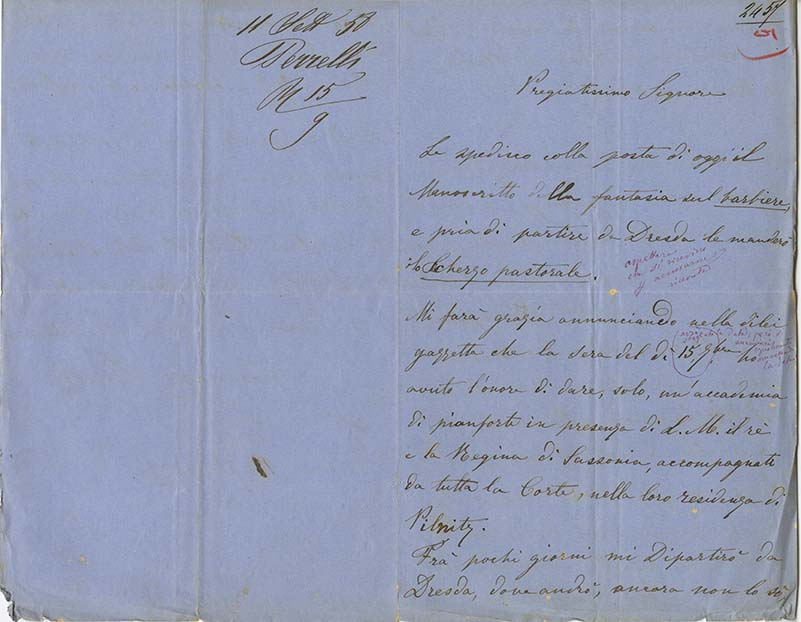 Perrelli
15
9
2457
5
Pregiatissimo Signore
Le spedisco colla posta di oggi il
Manoscritto della fantasia sul barbiere,
e pria di partire da Dresda le manderò
il Scherzo pastorale.
Mi farà grazia annunciando nella di lei
gazzetta che la sera del dì 15 9bre ho
avuto l'onore di dare, solo, un'accademia
di pianforte in presenza di S. M. il rè
e la Regina di Sassonia, accompagnati
da tutta la Corte, nella loro residenza di
Pilnitz.
Frà pochi giorni mi Dipartirò da
Dresda, dove andrò, ancora non lo sò,